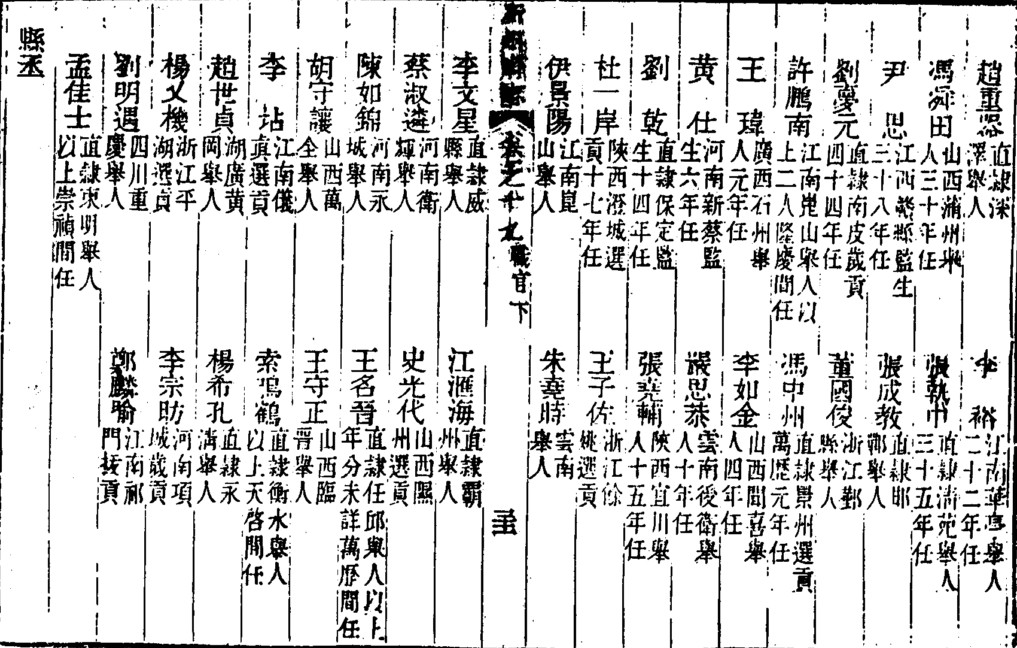 趙重 直隸深澤舉人
李裕 江南華亭舉人二十二年任
馮舜田 山西蒲州舉人三十年任
張執中 直隸清苑舉人三十五年任
尹思 江西贛縣監生三十八年任
張成教 直隸邯鄲舉人
劉慶元 直隸南皮歲貢四十四年任
董國俊 浙江鄞縣舉人
許鵬南 江南崑山舉人以上二人隆慶間任
馮中州 直隸景州選貢萬歷元年任
王瑋 廣西石州舉人元年任
李如金 山西聞喜舉人四年任
黃仕 河南新蔡監生六年任
嚴思恭 雲南後衛舉人十年任
劉乾 直隸保定監生十四年任
張堯輔 陝西宜川舉人十五年任
杜一岸 陝西澄城選貢十七年任
王子佐 浙江餘姚選貢
伊景陽 江南崑山舉人
朱堯時 雲南舉人
卷之十九 職官下
李文星 直隸威縣舉人
江滙海 直隸霸州舉人
蔡淑遴 河南衛輝舉人
史光代 山西隰州選貢
陳如錦 河南永城舉人
王名晉 直隸任邱舉人以上年分未詳萬歷間任
胡守讓 山西萬全舉人
王守正 山西臨晉舉人
李站 江南儀直選貢
索鳴鶴 直隸衡水舉人以上天啓間任
趙世貞 湖廣黃岡舉人
楊希孔 直隸永清舉人
楊乂機 浙江平湖選貢
李宗昉 河南項城歲貢
劉明遇 四川重慶舉人
鄭麟喻 江南祁門拔貢
孟佳士 直隸東明舉人以上崇禎間任
縣丞